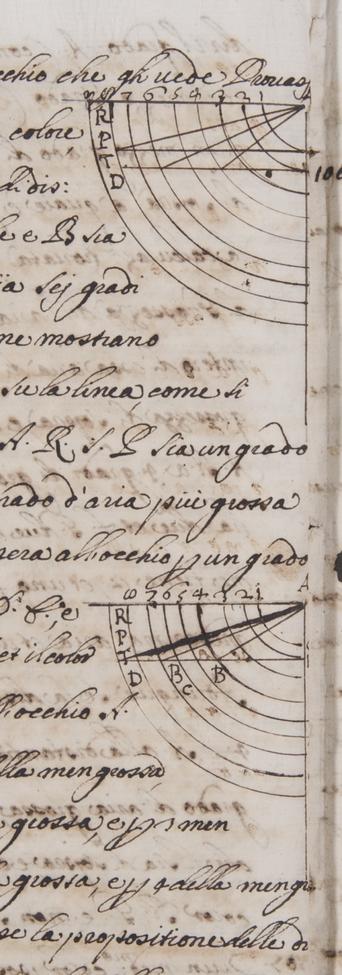 occhio che gli uede Prouasj
8 7 6 5 4 3 2 1
R
P
I
D
colore
di dis:
e e B sia
ia sej gradi
ne mostrano
su la linea, come si
A. R. s. P sia un grado
rado d'aria più grossa
sera all'occhio p un grado
8 7 6 5 4 3 2 1
A
R
P
I
D
B
C
B
et il color
l'occhio A.
lla men grossa,
grossa, e p 3 men
grossa, e p 4 della men gr
se la propositione delle di